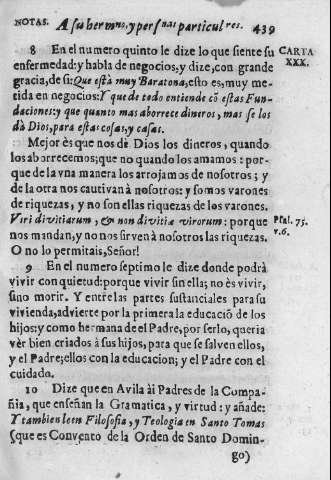 NOTAS. A su hermno, y persnas particulres. 439
8 En el numero quinto le dize lo que siente su CARTA
enfermedad: y habla de negocios, y dize, con grande XXX.
gracia, de si: Que està muy Baratona, esto es, muy me-
tida en negocios: Y que de todo entiende cõ estas Fun-
daciones: y que quanto mas aborrece dineros, mas se los
dà Dios, para estas cosas, y casas.
Mejor ès que nos dè Dios los dineros, quando
los aborrecemos; que no quando los amamos: por-
que de la vna manera los arrojamos de nosotros; y
de la otra nos cautivan à nosotros: y somos varones
de riquezas, y no son ellas riquezas de los varones.
Viri divitiarum, & non divitiæ virorum: porque Psal. 75.
nos mandan, y no nos sirven à nosotros las riquezas. v.6.
O no lo permitais, Señor!
9 En el numero septimo le dize donde podrà
vivir con quietud: porque vivir sin ella; no ès vivir,
sino morir. Y entre las partes sustanciales para su
vivienda, advierte por la primera la educaciõ de los
hijos: y como hermana de el Padre, por serlo, queria
vèr bien criados à sus hijos, para que se salven ellos,
y el Padre; ellos con la educacion; y el Padre con el
cuidado.
10 Dize que en Avila ài Padres de la Compa-
ñia, que enseñan la Gramatica, y virtud: y añade:
Y tambien leen Filosofia, y Teologia en Santo Tomas
(que es Convẽto de la Orden de Santo Domin-
go)